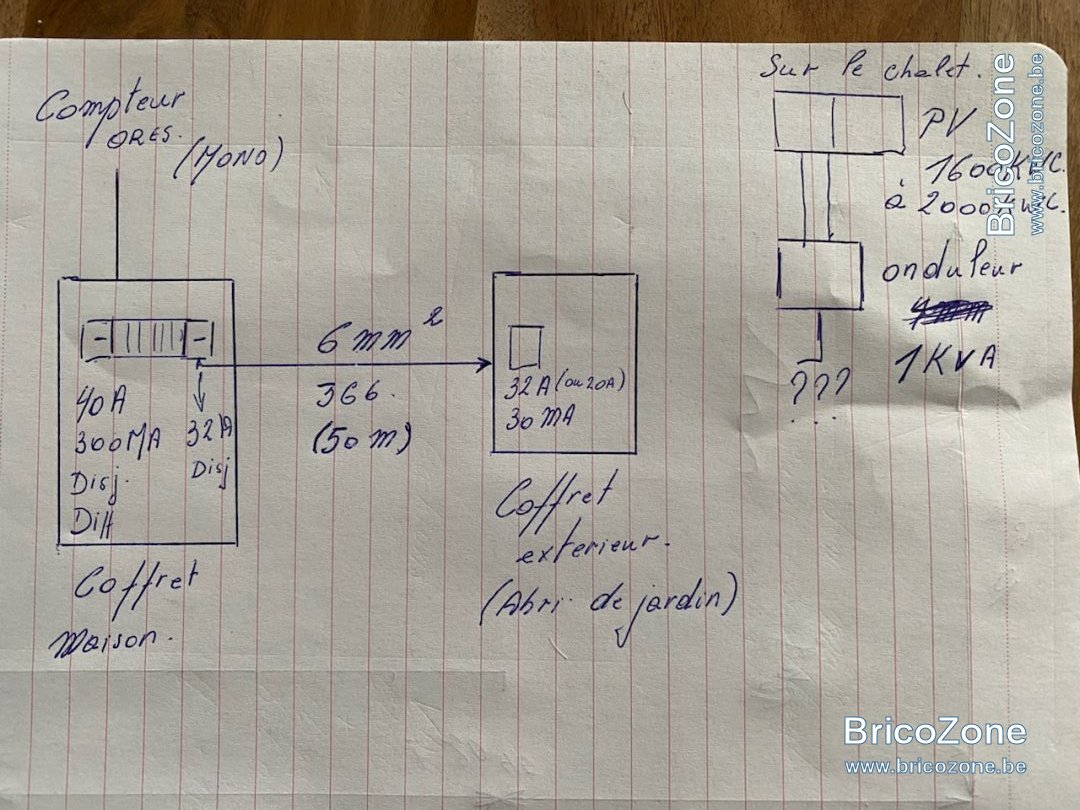 Compteur
ORES.
(MONO)
40A
300MA
Disj.
Diff
32A
Disj
Coffret
Maison.
6mm²
3G6.
(50m)
32A (ou 20A)
30MA
Coffret
exterieur.
(Abri de jardin)
Sur le chalet.
PV
1600KWC.
à 2000KWC.
onduleur
1KVA
???
BricoZone
www.bricozone.be
BricoZone
www.bricozone.be